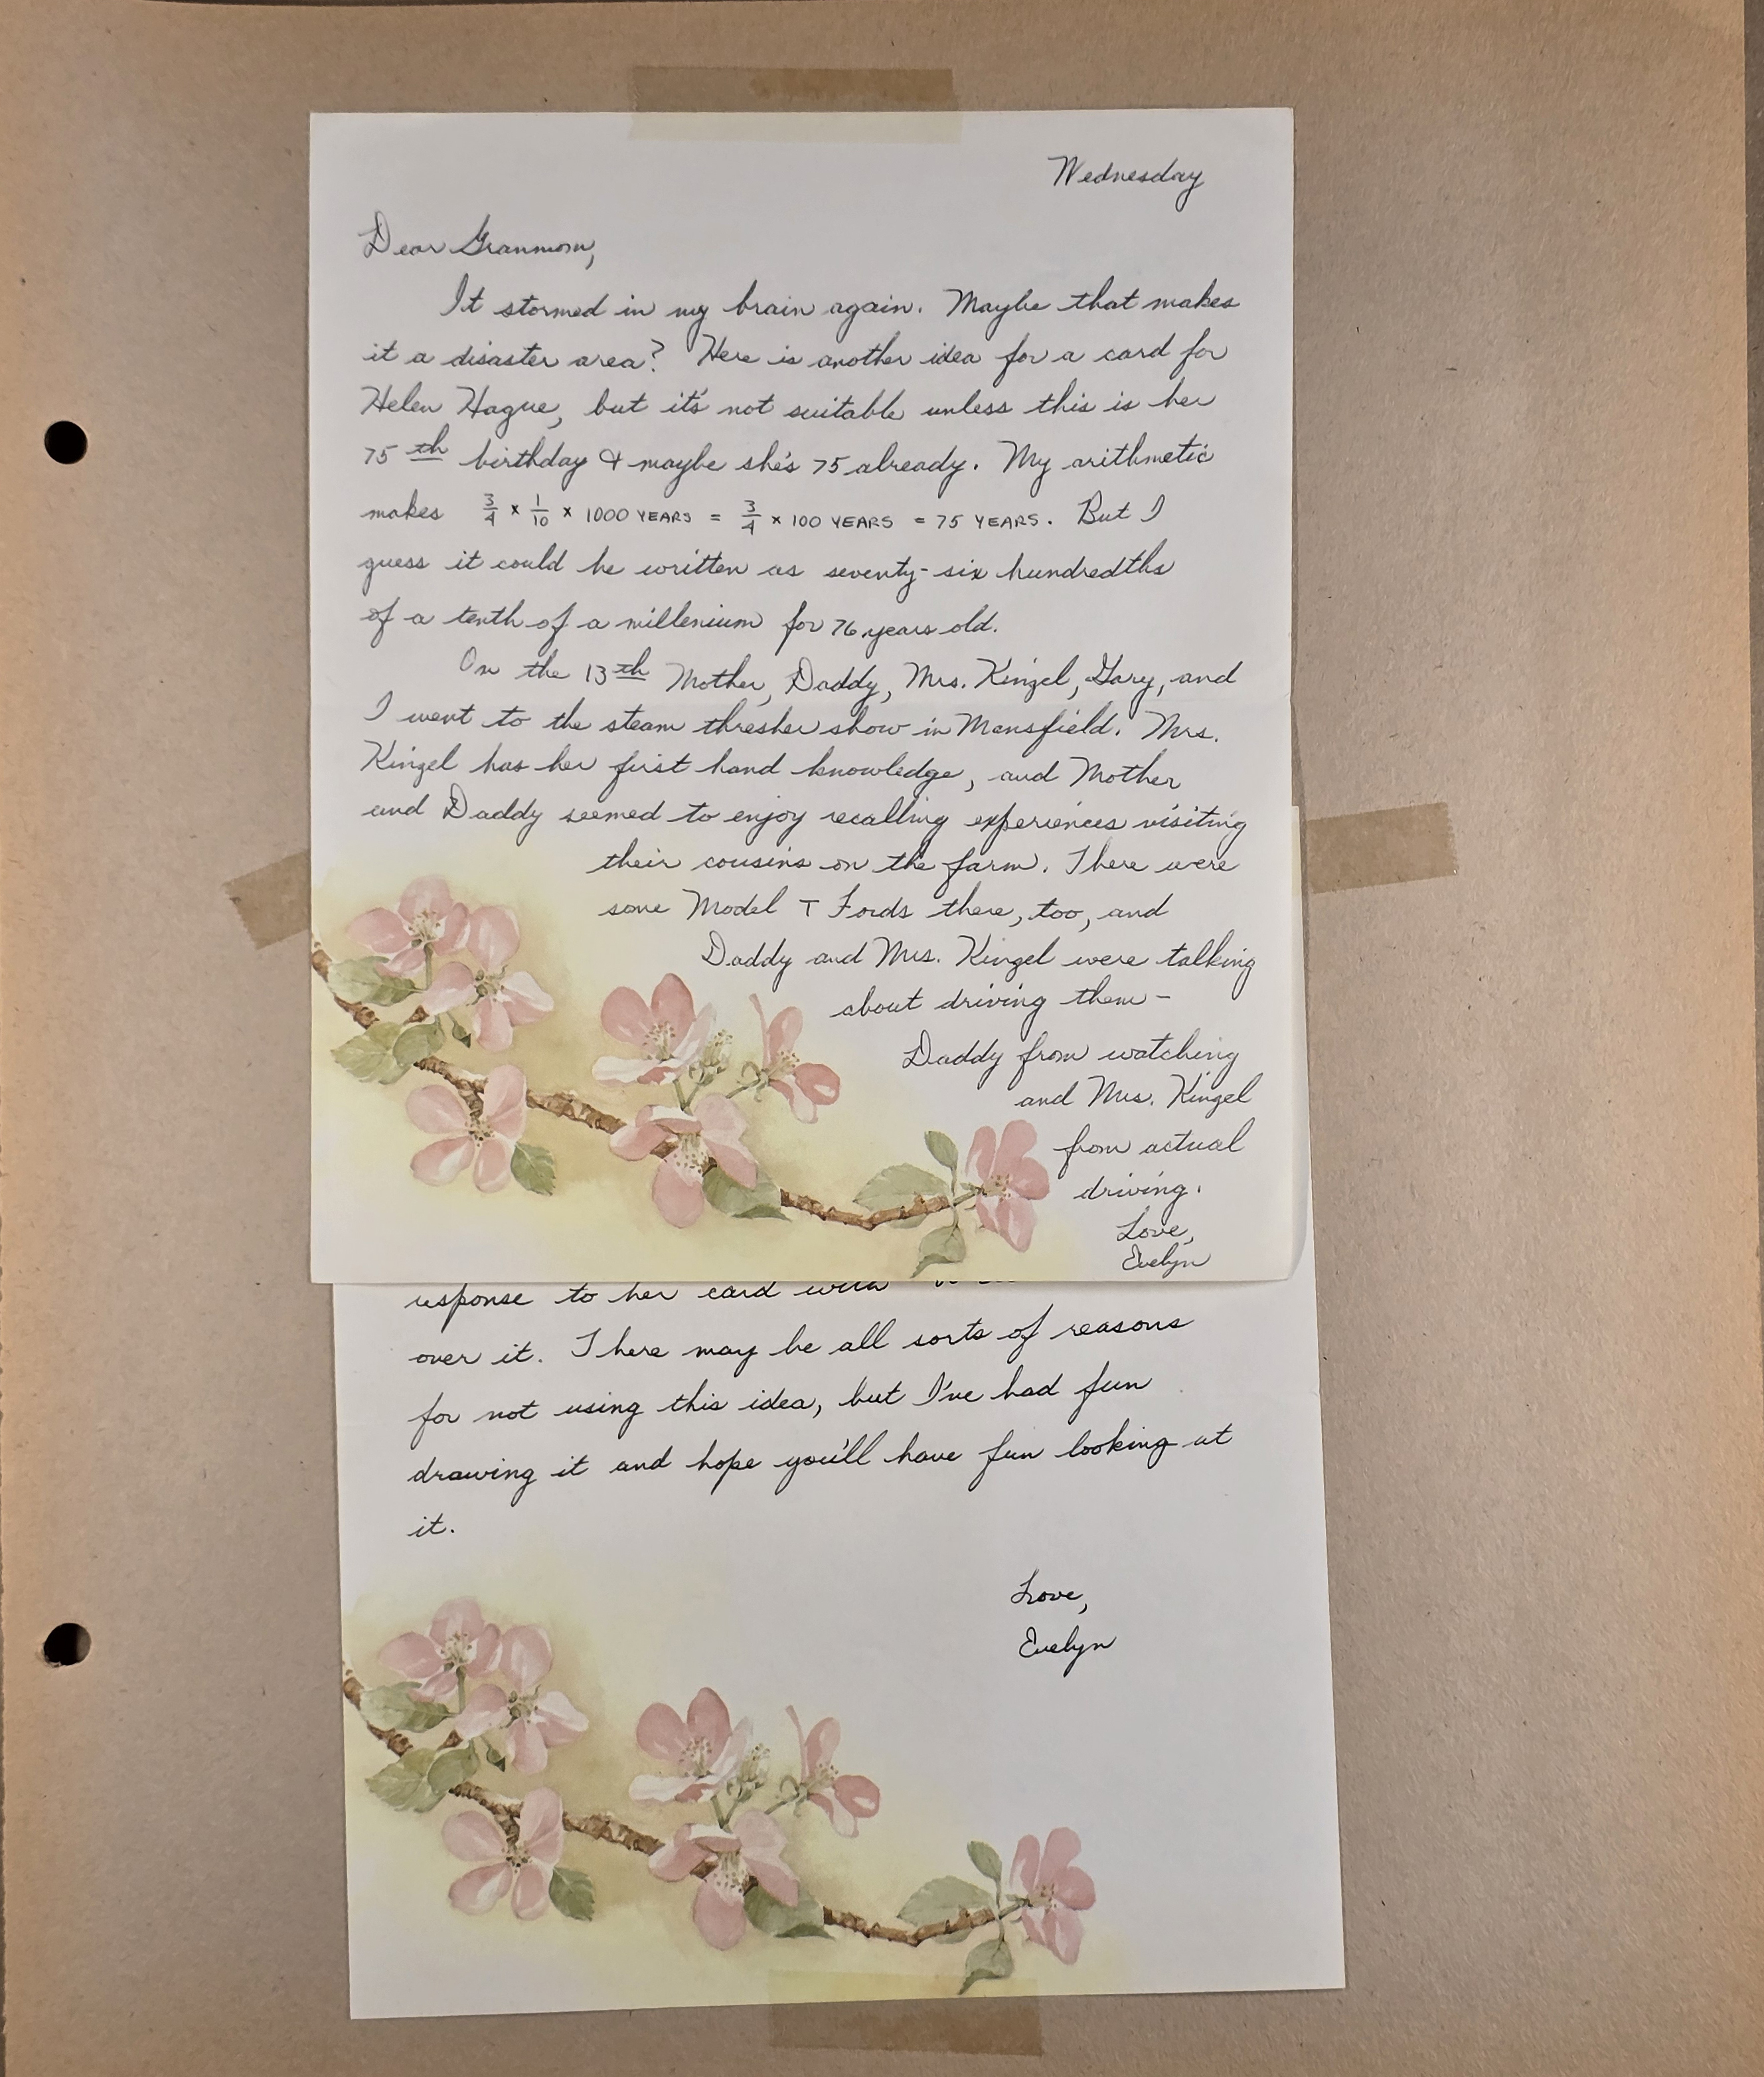 Wednesday
Dear Granmom,
It stormed in my brain again. Maybe that makes
it a disaster area? Here is another idea for a card for
Helen Hague, but it's not suitable unless this is her
75th birthday & maybe she's 75 already. My arithmetic
makes 3/4 × 1/10 × 1000 YEARS = 3/4 × 100 YEARS = 75 YEARS. But I
guess it could be written as seventy-six hundredths
of a tenth of a millenium for 76 years old.
On the 13th Mother, Daddy, Mrs. Kingel, Gary, and
I went to the steam thresher show in Mansfield. Mrs.
Kingel has her first hand knowledge, and Mother
and Daddy seemed to enjoy recalling experiences visiting
their cousins on the farm. There were
some Model T Fords there, too, and
Daddy and Mrs. Kingel were talking
about driving them -
Daddy from watching
and Mrs. Kingel
from actual
driving.
Love,
Evelyn
response to her card with
over it. There may be all sorts of reasons
for not using this idea, but I've had fun
drawing it and hope you'll have fun looking at
it.
Love,
Evelyn